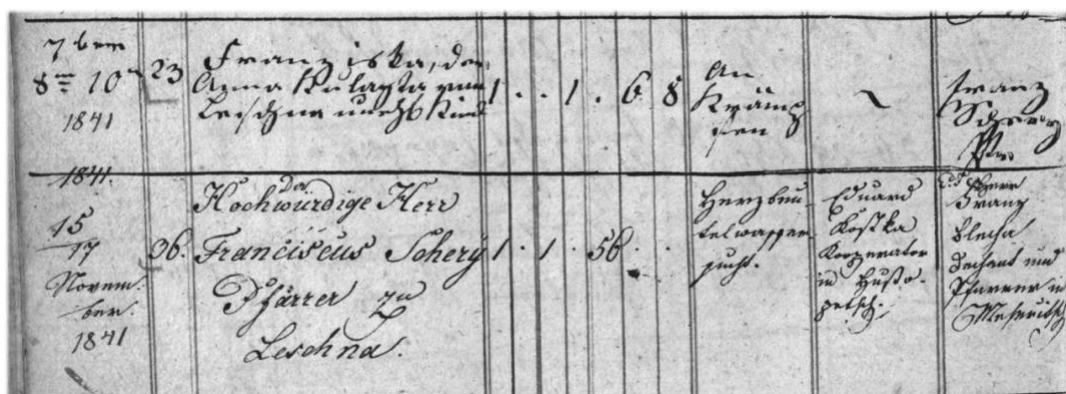 7ber
8 10
1841
23
Franziska, der
Anna
Leschna unehl. Kind
1 . . 1 . 6 8
An
Krämp
fen
Franz
Schery
1841.
15
17
Novem.
ber.
1841
36.
Der
Hochwürdige Herr
Franciscus Schery
Pfarrer zu
Leschna.
1 . 1 . 56 . .
Herzbeu
telwasser
sucht.
Eduard
Kostka
Kooperator
in Husto-
petsch.
Herr
Franz
Blecha
Dechant und
Pfarrer in
Meseritsch